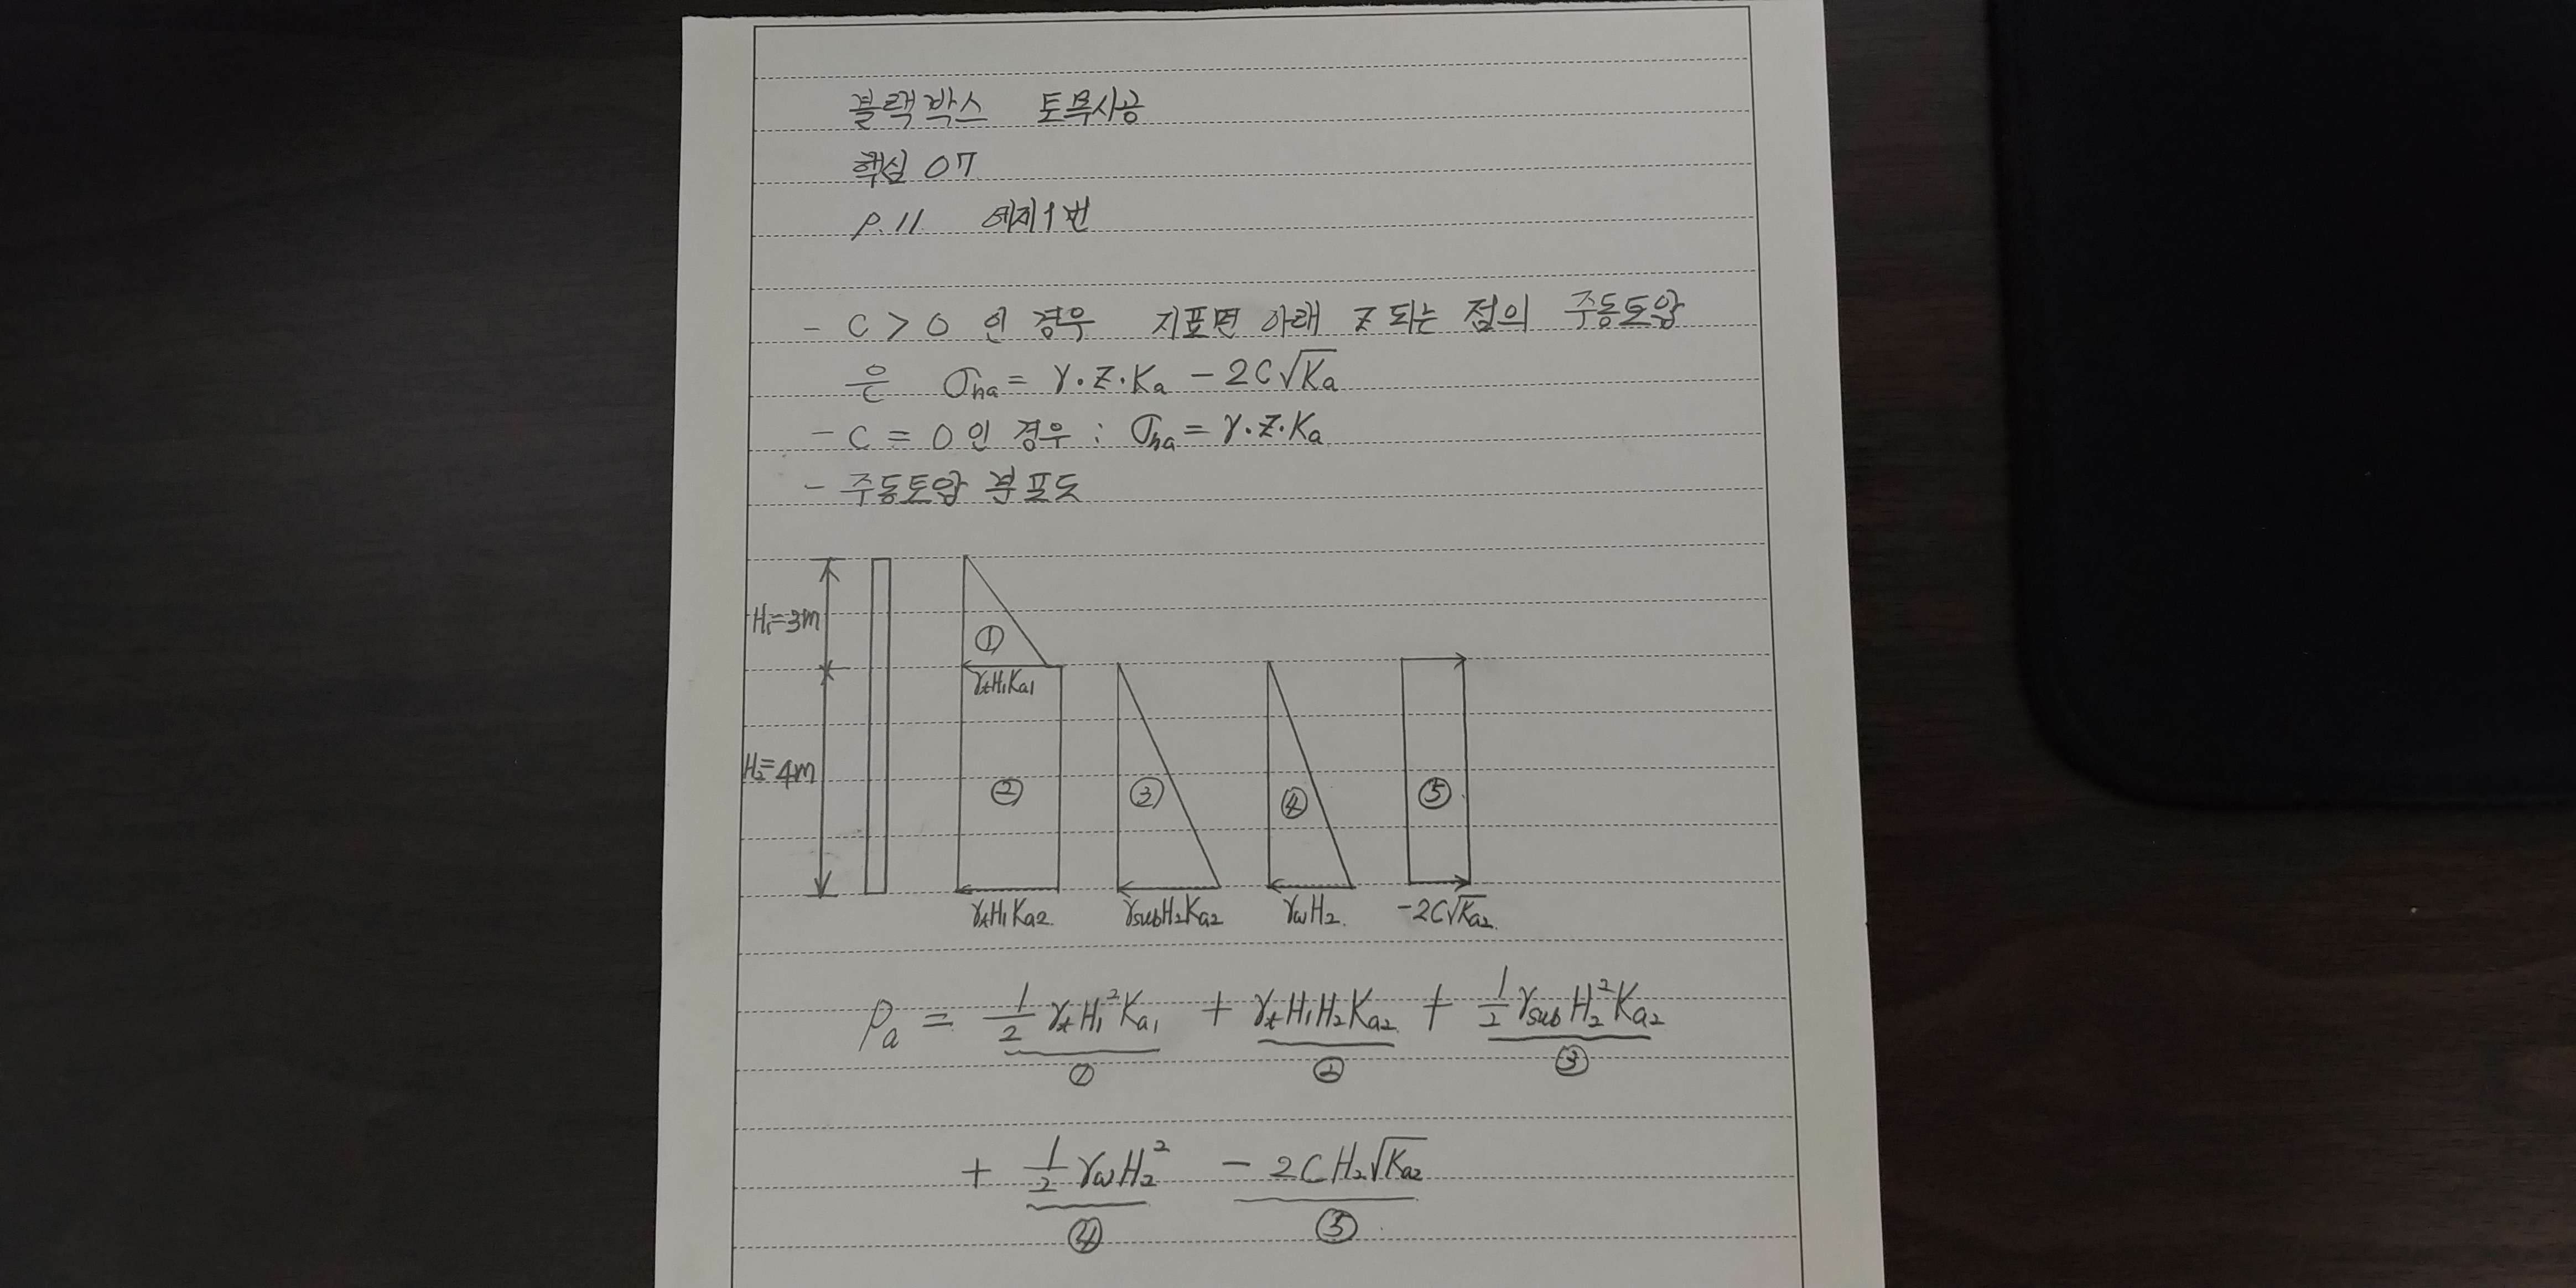 블랙박스 토목시공
핵심 07
P.11 예제1번
- C > 0 인 경우 지표면 아래 Z 되는 점의 주동토압
은 σha = γ·Z·Ka - 2C√Ka
- C = 0 인 경우 : σha = γ·Z·Ka
- 주동토압 분포도
H₁=3m
①
γtH₁Ka1
H₂=4m
② ③ ④ ⑤
γtH₁Ka2 γsubH₂Ka2 γwH₂ -2C√Ka2
Pa = 1/2 γtH₁²Ka₁ + γtH₁H₂Ka₂ + 1/2 γsubH₂²Ka₂
① ② ③
+ 1/2 γwH₂² - 2CH₂√Ka2
④ ⑤